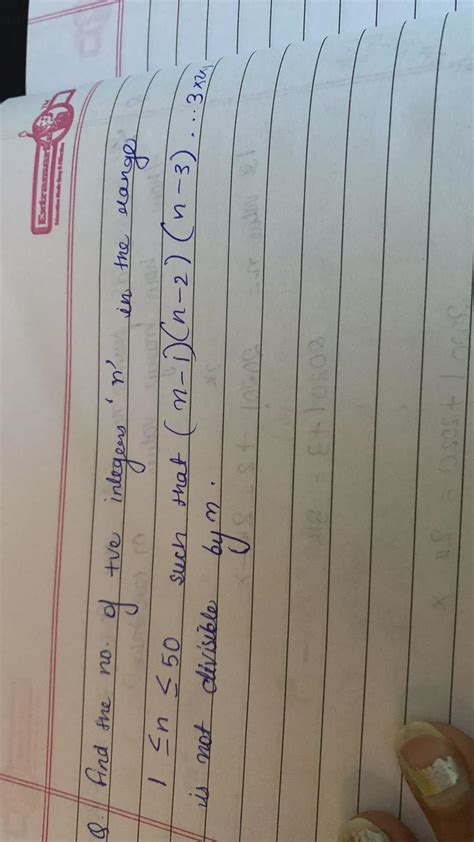 Extramarks
Q. Find the no. of +ve integers 'n' in the range
1 ≤ n ≤ 50 such that (n-1)(n-2)(n-3)...3×2×1
is not divisible by n.